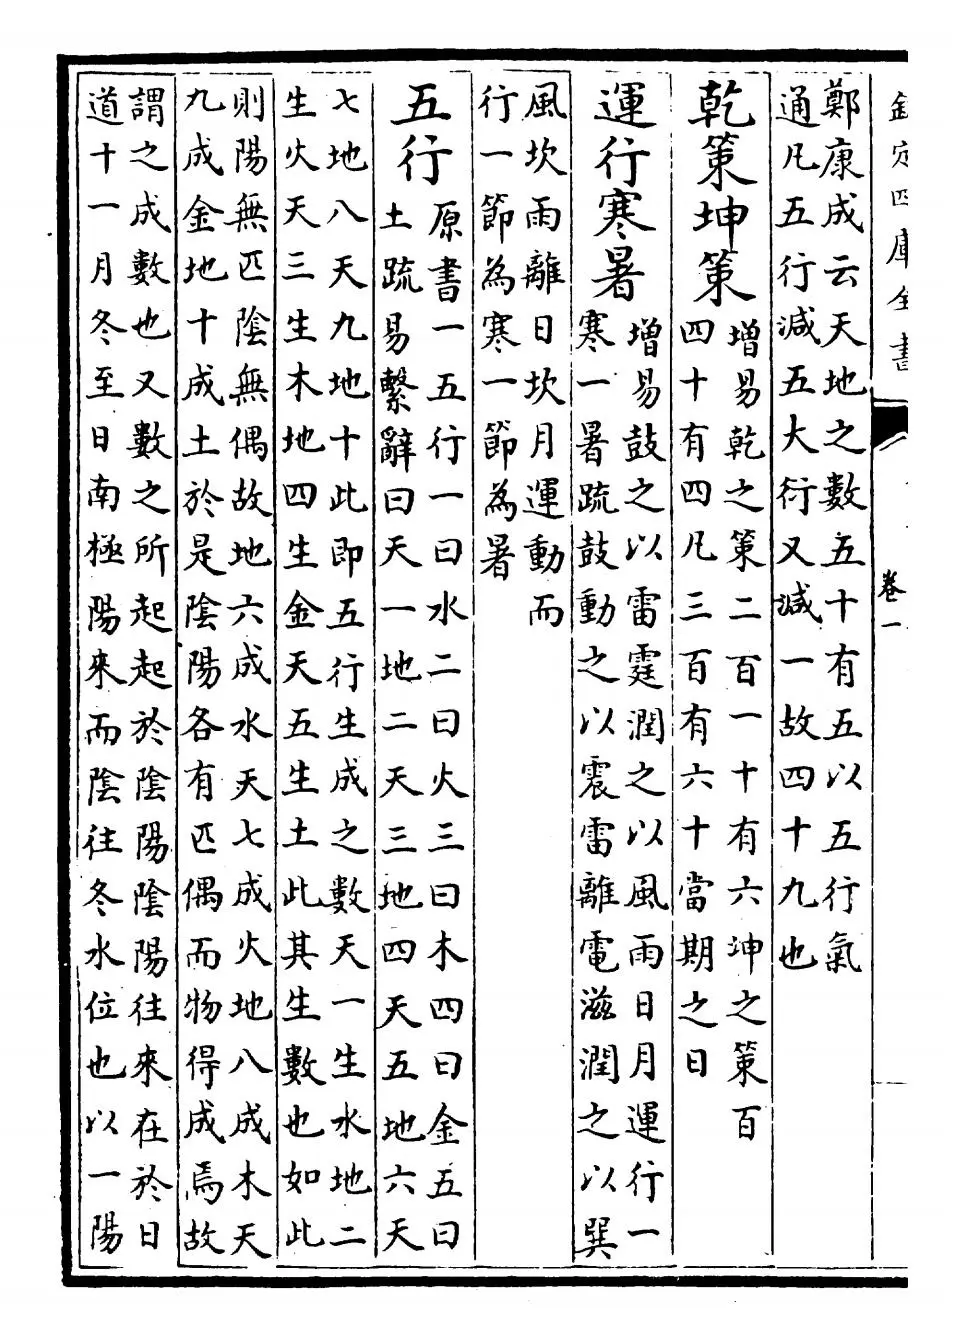 欽定四庫全書
卷一
鄭康成云天地之數五十有五以五行氣
通凡五行減五大衍又減一故四十九也
乾策坤策
增易乾之策二百一十有六坤之策百
四十有四凡三百有六十當期之日
運行寒暑
增易鼓之以雷霆潤之以風雨日月運行一
寒一暑疏鼓動之以震雷離電滋潤之以巽
風坎雨離日坎月運動而
行一節為寒一節為暑
五行
原書一五行一曰水二曰火三曰木四曰金五曰
土疏易繫辭曰天一地二天三地四天五地六天
七地八天九地十此即五行生成之數天一生水地二
生火天三生木地四生金天五生土此其生數也如此
則陽無匹陰無偶故地六成水天七成火地八成木天
九成金地十成土於是陰陽各有匹偶而物得成焉故
謂之成數也又數之所起起於陰陽陰陽往來在於日
道十一月冬至日南極陽來而陰往冬水位也以一陽